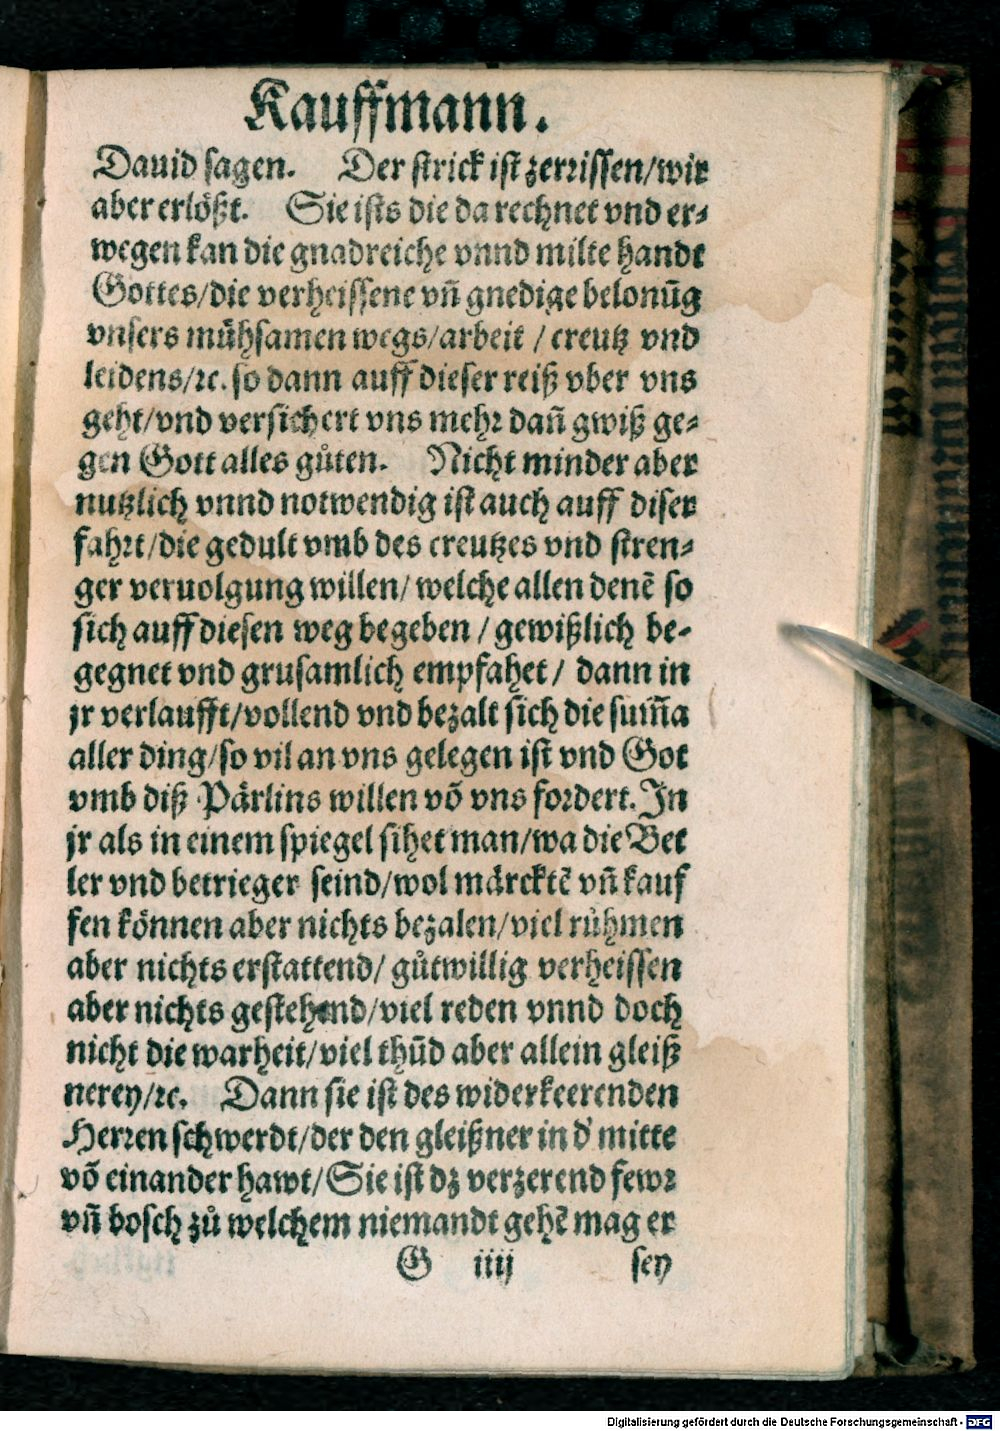 Kauffmann.
Dauid sagen. Der strick ist zerrissen/wir
aber erlößt. Sie ists die da rechnet vnd er⸗
wegen kan die gnadreiche vnnd milte handt
Gottes/die verheissene vñ gnedige belonũg
vnsers mühsamen wegs/arbeit / creutz vnd
leidens/ꝛc. so dann auff dieser reiß vber vns
geht/vnd versichert vns mehr dañ gwiß ge⸗
gen Gott alles gůten. Nicht minder aber
nutzlich vnnd notwendig ist auch auff diser
fahrt/die gedult vmb des creutzes vnd stren⸗
ger veruolgung willen/ welche allen denẽ so
sich auff diesen weg begeben / gewißlich be⸗
gegnet vnd grusamlich empfahet / dann in
jr verlaufft/vollend vnd bezalt sich die sum̃a
aller ding/so vil an vns gelegen ist vnd Got
vmb diß Pärlins willen võ vns fordert. In
jr als in einem spiegel sihet man/wa die Bet
ler vnd betrieger seind/wol märcktẽ vñ kauf
fen können aber nichts bezalen/viel růhmen
aber nichts erstattend/ gůtwillig verheissen
aber nichts gestehend/viel reden vnnd doch
nicht die warheit/viel thũd aber allein gleiß
nerey/ꝛc. Dann sie ist des widerkeerenden
Herren schwerdt/der den gleißner in d' mitte
võ einander hawt/Sie ist dz verzerend fewr
vñ bosch zů welchem niemandt gehẽ mag er
G iiij sey
Digitalisierung gefördert durch die Deutsche Forschungsgemeinschaft - DFG